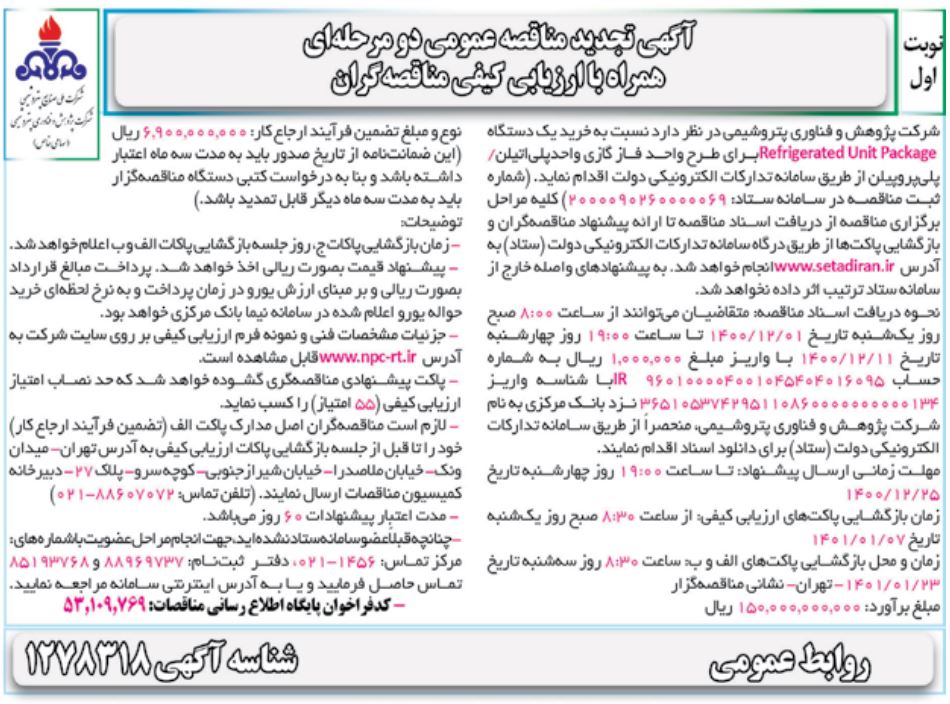 نوبت
اول
آگهی تجدید مناقصه عمومی دو مرحله‌ای
همراه با ارزیابی کیفی مناقصه‌گران
شرکت ملی صنایع پتروشیمی
شرکت پژوهش و فناوری پتروشیمی
(سهامی خاص)
شرکت پژوهش و فناوری پتروشیمی در نظر دارد نسبت به خرید یک دستگاه
Refrigerated Unit Package برای طرح واحد فاز گازی واحد پلی‌اتیلن/
پلی‌پروپیلن از طریق سامانه تدارکات الکترونیکی دولت اقدام نماید. (شماره
ثبت مناقصه در سامانه ستاد: ۲۰۰۰۰۹۰۲۶۰۰۰۰۰۶۹) کلیه مراحل
برگزاری مناقصه از دریافت اسناد مناقصه تا ارائه پیشنهاد مناقصه‌گران و
بازگشایی پاکت‌ها از طریق درگاه سامانه تدارکات الکترونیکی دولت (ستاد) به
آدرس www.setadiran.ir انجام خواهد شد. به پیشنهادهای واصله خارج از
سامانه ستاد ترتیب اثر داده نخواهد شد.
نحوه دریافت اسناد مناقصه: متقاضیان می‌توانند از ساعت ۸:۰۰ صبح
روز یک‌شنبه تاریخ ۱۴۰۰/۱۲/۰۱ تا ساعت ۱۹:۰۰ روز چهارشنبه
تاریخ ۱۴۰۰/۱۲/۱۱ با واریز مبلغ ۱,۰۰۰,۰۰۰ ریال به شماره
حساب IR ۹۶۰۱۰۰۰۰۴۰۰۱۰۴۵۴۰۴۰۱۶۰۹۵ با شناسه واریز
۳۶۵۱۰۵۳۷۴۲۹۵۱۱۰۸۶۰۰۰۰۰۰۰۰۰۰۰۱۳۴ نزد بانک مرکزی به نام
شرکت پژوهش و فناوری پتروشیمی، منحصراً از طریق سامانه تدارکات
الکترونیکی دولت (ستاد) برای دانلود اسناد اقدام نمایند.
مهلت زمانی ارسال پیشنهاد: تا ساعت ۱۹:۰۰ روز چهارشنبه تاریخ
۱۴۰۰/۱۲/۲۵
زمان بازگشایی پاکت‌های ارزیابی کیفی: از ساعت ۸:۳۰ صبح روز یک‌شنبه
تاریخ ۱۴۰۱/۰۱/۰۷
زمان و محل بازگشایی پاکت‌های الف و ب: ساعت ۸:۳۰ روز سه‌شنبه تاریخ
۱۴۰۱/۰۱/۲۳ – تهران – نشانی مناقصه‌گزار
مبلغ برآورد: ۱۵۰,۰۰۰,۰۰۰,۰۰۰ ریال
نوع و مبلغ تضمین فرآیند ارجاع کار: ۶,۹۰۰,۰۰۰,۰۰۰ ریال
(این ضمانت‌نامه از تاریخ صدور باید به مدت سه ماه اعتبار
داشته باشد و بنا به درخواست کتبی دستگاه مناقصه‌گزار
باید به مدت سه ماه دیگر قابل تمدید باشد.)
توضیحات:
– زمان بازگشایی پاکات ج، روز جلسه بازگشایی پاکات الف و ب اعلام خواهد شد.
– پیشنهاد قیمت بصورت ریالی اخذ خواهد شد. پرداخت مبالغ قرارداد
بصورت ریالی و بر مبنای ارزش یورو در زمان پرداخت و به نرخ لحظه‌ای خرید
حواله یورو اعلام شده در سامانه نیما بانک مرکزی خواهد بود.
– جزئیات مشخصات فنی و نمونه فرم ارزیابی کیفی بر روی سایت شرکت به
آدرس www.npc-rt.ir قابل مشاهده است.
– پاکت پیشنهادی مناقصه‌گری گشوده خواهد شد که حد نصاب امتیاز
ارزیابی کیفی (۵۵ امتیاز) را کسب نماید.
– لازم است مناقصه‌گران اصل مدارک پاکت الف (تضمین فرآیند ارجاع کار)
خود را تا قبل از جلسه بازگشایی پاکات ارزیابی کیفی به آدرس تهران – میدان
ونک – خیابان ملاصدرا – خیابان شیراز جنوبی – کوچه سرو – پلاک ۲۷ – دبیرخانه
کمیسیون مناقصات ارسال نمایند. (تلفن تماس: ۸۸۶۰۷۰۷۲–۰۲۱)
– مدت اعتبار پیشنهادات ۶۰ روز می‌باشد.
– چنانچه قبلاً عضو سامانه ستاد نشده‌اید، جهت انجام مراحل عضویت با شماره‌های:
مرکز تماس: ۱۴۵۶–۰۲۱، دفتر ثبت‌نام: ۸۸۹۶۹۷۳۷ و ۸۵۱۹۳۷۶۸
تماس حاصل فرمایید و یا به آدرس اینترنتی سامانه مراجعه نمایید.
– کد فراخوان پایگاه اطلاع رسانی مناقصات: ۵۳,۱۰۹,۷۶۹
روابط عمومی
شناسه آگهی ۱۲۷۸۳۱۸